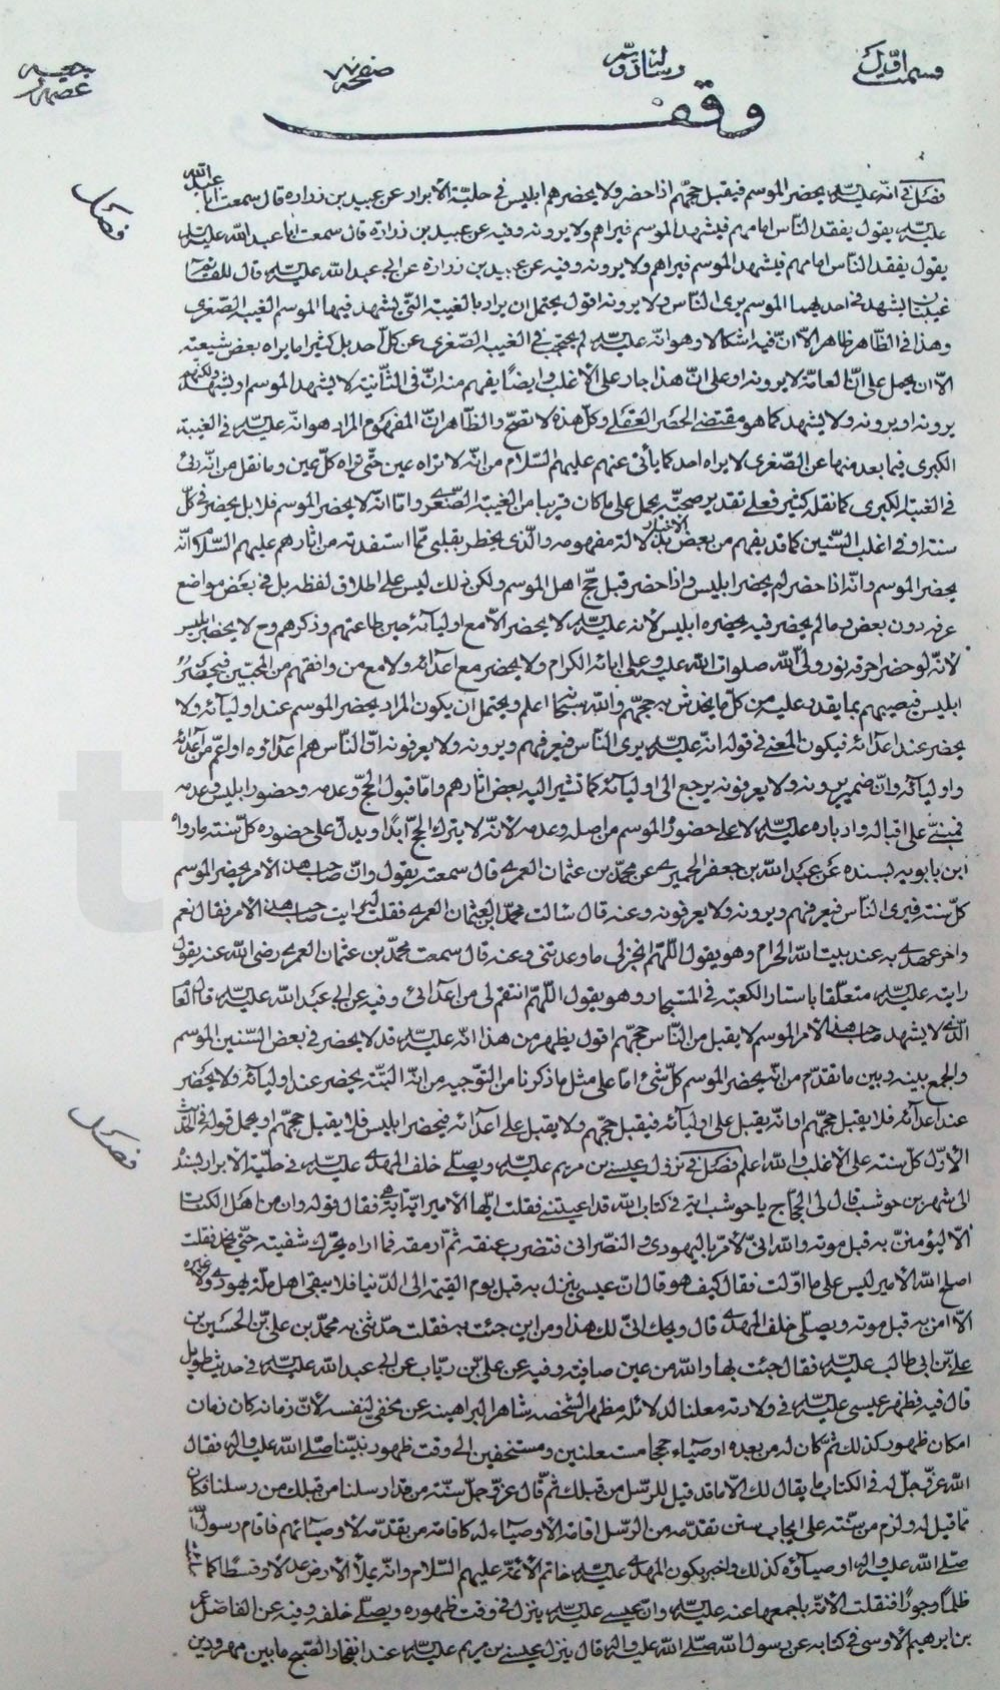 قسمت اول
رساله
صفحه
رجعیه
عصمة
وقف
فصل
فصل فی انه علیه السلام یحضر الموسم فیقبل حجهم اذا حضر ولا یحضرهم ابلیس فی حلیة الابرار عن عبید بن زراره قال سمعت ابا عبد الله
علیه السلام یقول یفقد الناس امامهم فیشهد الموسم فیراهم ولا یرونه وفیه عن عبید بن زرارة قال سمعت ابا عبد الله علیه السلام
یقول یفقد الناس امامهم فیشهد الموسم فیراهم ولا یرونه وفیه عن عبید بن زرارة عن ابی عبد الله علیه السلام قال للقائم
غیبتان یشهد فی احدیهما الموسم یری الناس ولا یرونه اقول یحتمل ان یراد بالغیبة التی یشهد فیها الموسم الغیبة الصغری
وهذا فی الظاهر ظاهر الا ان فیه اشکالا وهو انه علیه السلام لم یحتجب فی الغیبة الصغری عن کل احد بل کثیرا ما یراه بعض شیعته
الا ان یحمل علی ان العامة لا یرونه او علی ان هذا جار علی الاغلب وایضا یفهم منه ان فی الثانیة لا یشهد الموسم او یشهد ولکنهم
یرونه او یرونه ولا یشهد کما هو مقتضی الحصر العقلی وکل هذه لا تصح والظاهر ان المفهوم المراد هو انه علیه السلام فی الغیبة
الکبری فیما بعد منها عن الصغری لا یراه احد کما یأتی عنهم علیهم السلام من انه لا تراه عین حتی تراه کل عین وما نقل من انه رئی
فی الغیبة الکبری کما نقله کثیر فعلی تقدیر صحته یحمل علی ما کان قریبا من الغیبة الصغری واما انه لا یحضر الموسم فلا بل یحضر فی کل
سنة او فی اغلب السنین کما قد یفهم من بعض الاخبار بدلالة مفهومه والذی یخطر بقلبی مما استفدته من اثارهم علیهم السلام انه
یحضر الموسم وانه اذا حضر لم یحضر ابلیس واذا حضر قبل حج اهل الموسم ولکن ذلک لیس علی اطلاق لفظه بل فی بعض مواضع
عرفه دون بعض وما لم یحضر فیه یحضره ابلیس لانه علیه السلام لا یحضر الا مع اولیائه حین طاعتهم وذکرهم وح لا یحضر ابلیس
لانه لو حضر احرقه نور ولی الله صلوات الله علیه وعلی ابائه الکرام ولا یحضر مع اعدائه ولا مع من وافقهم من المحبین فیحضر
ابلیس فیصیبهم بما یقدر علیه من کل ما یخدش به حجهم والله سبحانه اعلم ویحتمل ان یکون المراد یحضر الموسم عند اولیائه ولا
یحضر عند اعدائه فیکون المعنی فی قوله انه علیه السلام یری الناس فیعرفهم ویرونه ولا یعرفونه ان الناس هم اعداؤه او اعم من اعدائه
واولیائه وان ضمیر یرونه ولا یعرفونه یرجع الی اولیائه کما تشیر الیه بعض اثارهم واما قبول الحج وعدمه وحضور ابلیس وعدمه
فمبنی علی اقباله وادباره علیه السلام لا علی حضور الموسم من اصله وعدمه لانه لا یترک الحج ابدا ویدل علی حضوره کل سنة ما رواه
ابن بابویه بسنده عن عبد الله بن جعفر الحمیری عن محمد بن عثمان العمری قال سمعته یقول وان صاحب هذا الامر یحضر الموسم
کل سنة فیری الناس فیعرفهم ویرونه ولا یعرفونه وعنه قال سالت محمد بن عثمان العمری فقلت له رایت صاحب هذا الامر فقال نعم
واخر عهدی به عند بیت الله الحرام وهو یقول اللهم انجز لی ما وعدتنی وعنه قال سمعت محمد بن عثمان العمری رضی الله عنه یقول
رایته علیه السلام متعلقا باستار الکعبة فی المستجار وهو یقول اللهم انتقم لی من اعدائی وفیه عن ابی عبد الله علیه السلام قال العام
الذی لا یشهد صاحب هذا الامر الموسم لا یقبل من الناس حجهم اقول یظهر من هذا انه علیه السلام قد لا یحضر فی بعض السنین الموسم
والجمع بینه وبین ما تقدم من انه یحضر الموسم کل شیء اما علی مثل ما ذکرنا من التوجیه من انه البتة یحضر عند اولیائه ولا یحضر
عند اعدائه فلا یقبل حجهم او انه یقبل علی اولیائه فیقبل حجهم ولا یقبل علی اعدائه فیحضر ابلیس فلا یقبل حجهم او یحمل قوله فی الحدیث
فصل
الاول کل سنة علی الاغلب والله اعلم فصل فی نزول عیسی بن مریم علیه السلام ویصلی خلف المهدی علیه السلام فی حلیة الابرار بسنده
الی شهر بن حوشب قال لی الحجاج یا حوشب ایة فی کتاب الله قد اعیتنی فقلت ایها الامیر ایة ایة هی فقال قوله وان من اهل الکتاب
الا لیؤمنن به قبل موته والله انی لامر بالیهودی والنصرانی فتضرب عنقه ثم ارمقه فما اراه یحرک شفیته حتی یخمد فقلت
اصلح الله الامیر لیس علی ما اولت فقال کیف هو قال ان عیسی ینزل به قبل یوم القیمة الی الدنیا فلا یبقی اهل ملة یهودی ولا غیره
الا امن به قبل موته ویصلی خلف المهدی قال ویحک انی لک هذا ومن این جئت به فقلت حدثنی به محمد بن علی بن الحسین بن
علی بن ابی طالب علیه السلام فقال جئت بها والله من عین صافیة وفیه عن علی بن رئاب عن ابی عبد الله علیه السلام فی حدیث طویل
قال فیه فظهر عیسی علیه السلام فی ولادته معلنا لدلائله مظهر الشخصه شاهر البراهینه غیر مخفی لنفسه لان زمانه کان زمان
امکان ظهور کذلک ثم کان له من بعده اوصیاء حججا مستعلنین ومستخفین الی وقت ظهور نبینا صلی الله علیه واله فقال
الله عز وجل له فی الکتاب ما یقال لک الا ما قد قیل للرسل من قبلک ثم قال عز وجل سنة من قد ارسلنا من قبلک من رسلنا فکان
مما قیل له ولزم من سنته علی ایجاب سنن تقدمه من الرسل اقامة الاوصیاء له کاقامة من تقدمه لاوصیائهم فاقام رسول الله
صلی الله علیه واله اوصیاؤه کذلک واخبر بکون المهدی علیه السلام خاتم الائمة علیهم السلام وانه یملأ الارض عدلا وقسطا کما ملئت
ظلما وجورا فنقلت الامة باجمعها عنه علیه السلام وان عیسی علیه السلام ینزل فی وقت ظهوره ویصلی خلفه وفیه عن الفاضل عمر
بن ابرهیم الاوسی فی کتابه عن رسول الله صلی الله علیه واله قال ینزل عیسی بن مریم علیه السلام عند انفجار الصبح ما بین مهرودین